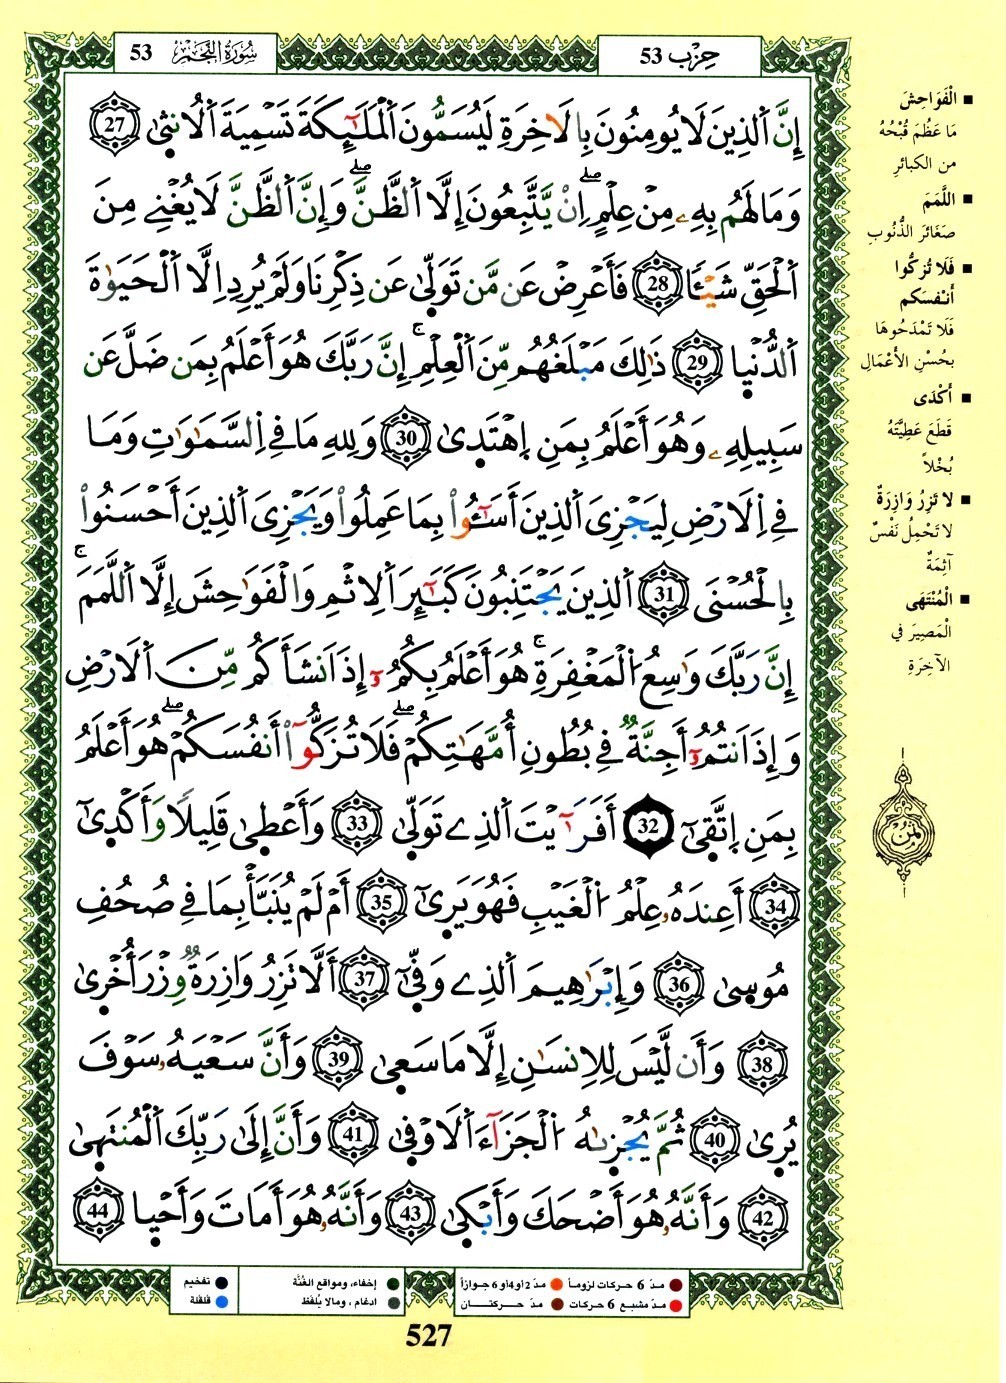 سُورَةُ النَّجْمِ 53
حِزْب 53
إِنَّ اَ۬لذِينَ لَا يُومِنُونَ بِالَاخِرَةِ لَيُسَمُّونَ اَ۬لْمَلَٰٓئِكَةَ تَسْمِيَةَ اَ۬لُانث۪ىٰ (27)
وَمَا لَهُم بِهِۦ مِنْ عِلْمٍۖ اِنْ يَّتَّبِعُونَ إِلَّا اَ۬لظَّنَّۖ وَإِنَّ اَ۬لظَّنَّ لَا يُغْنِے مِنَ
اَ۬لْحَقِّ شَيْـٔاٗ (28) فَأَعْرِضْ عَن مَّن تَوَلّ۪ىٰ عَن ذِكْرِنَا وَلَمْ يُرِدِ اِلَّا اَ۬لْحَيَوٰةَ
اَ۬لدُّنْي۪ا (29) ذَٰلِكَ مَبْلَغُهُم مِّنَ اَ۬لْعِلْمِۚ إِنَّ رَبَّكَ هُوَ أَعْلَمُ بِمَن ضَلَّ عَن
سَبِيلِهِۦ وَهُوَ أَعْلَمُ بِمَنِ اِ۪هْتَد۪ىٰ (30) وَلِلهِ مَا فِے اِ۬لسَّمَٰوَٰتِ وَمَا
فِے اِ۬لَارْضِ لِيَجْزِيَ اَ۬لذِينَ أَسَٰٓـُٔواْ بِمَا عَمِلُواْ وَيَجْزِيَ اَ۬لذِينَ أَحْسَنُواْ
بِالْحُسْنَى (31) اَ۬لذِينَ يَجْتَنِبُونَ كَبَٰٓئِرَ اَ۬لِاثْمِ وَالْفَوَٰحِشَ إِلَّا اَ۬للَّمَمَۚ
إِنَّ رَبَّكَ وَٰسِعُ اُ۬لْمَغْفِرَةِۚ هُوَ أَعْلَمُ بِكُمُۥٓ إِذَ اَنشَأَكُم مِّنَ اَ۬لَارْضِ
وَإِذَ اَنتُمُۥٓ أَجِنَّةٞ فِے بُطُونِ أُمَّهَٰتِكُمْۖ فَلَا تُزَكُّوٓاْ أَنفُسَكُمْۖ هُوَ أَعْلَمُ
بِمَنِ اِ۪تَّق۪ىٰٓ (32) أَفَرَٰٓيْتَ اَ۬لذِے تَوَلّ۪ىٰ (33) وَأَعْط۪ىٰ قَلِيلاٗ وَأَكْد۪ىٰٓ
(34) أَعِندَهُۥ عِلْمُ اُ۬لْغَيْبِ فَهُوَ يَر۪ىٰٓ (35) أَمْ لَمْ يُنَبَّأْ بِمَا فِے صُحُفِ
مُوس۪ىٰ (36) وَإِبْرَٰهِيمَ اَ۬لذِے وَفّ۪ىٰٓ (37) أَلَّا تَزِرُ وَازِرَةٞ وِزْرَ أُخْر۪ىٰ
(38) وَأَن لَّيْسَ لِلِانسَٰنِ إِلَّا مَا سَع۪ىٰ (39) وَأَنَّ سَعْيَهُۥ سَوْفَ
يُر۪ىٰ (40) ثُمَّ يُجْز۪ىٰهُ اُ۬لْجَزَآءَ اَ۬لَاوْف۪ىٰ (41) وَأَنَّ إِلَىٰ رَبِّكَ اَ۬لْمُنتَه۪ىٰ
(42) وَأَنَّهُۥ هُوَ أَضْحَكَ وَأَبْك۪ىٰ (43) وَأَنَّهُۥ هُوَ أَمَاتَ وَأَحْي۪ا (44)
■ الْفَوَاحِشَ
مَا عَظُمَ قُبْحُهُ
من الكبائرِ
■ اللَّمَمَ
صَغَائرَ الذُّنُوبِ
■ فَلَا تُزَكُّوا
أَنْفسَكم
فَلَا تَمْدَحُوهَا
بحُسْنِ الأَعْمَالِ
■ أَكْدَى
قَطَعَ عَطِيَّتَهُ
بُخْلاً
■ لا تَزِرُ وَازِرَةٌ
لا تَحْمِلُ نَفْسٌ
آثِمَةٌ
■ الْمُنْتَهَى
الْمَصِيرَ في
الآخِرَةِ
ثُمُن
مدّ 6 حركات لزوماً
مدّ 2 أو 4 أو 6 جوازاً
إخفاء، ومواقع الغُنَّة
تفخيم
مدّ مشبع 6 حركات
مدّ حركتان
ادغام ، ومالا يُلفَظ
قلقلة
527